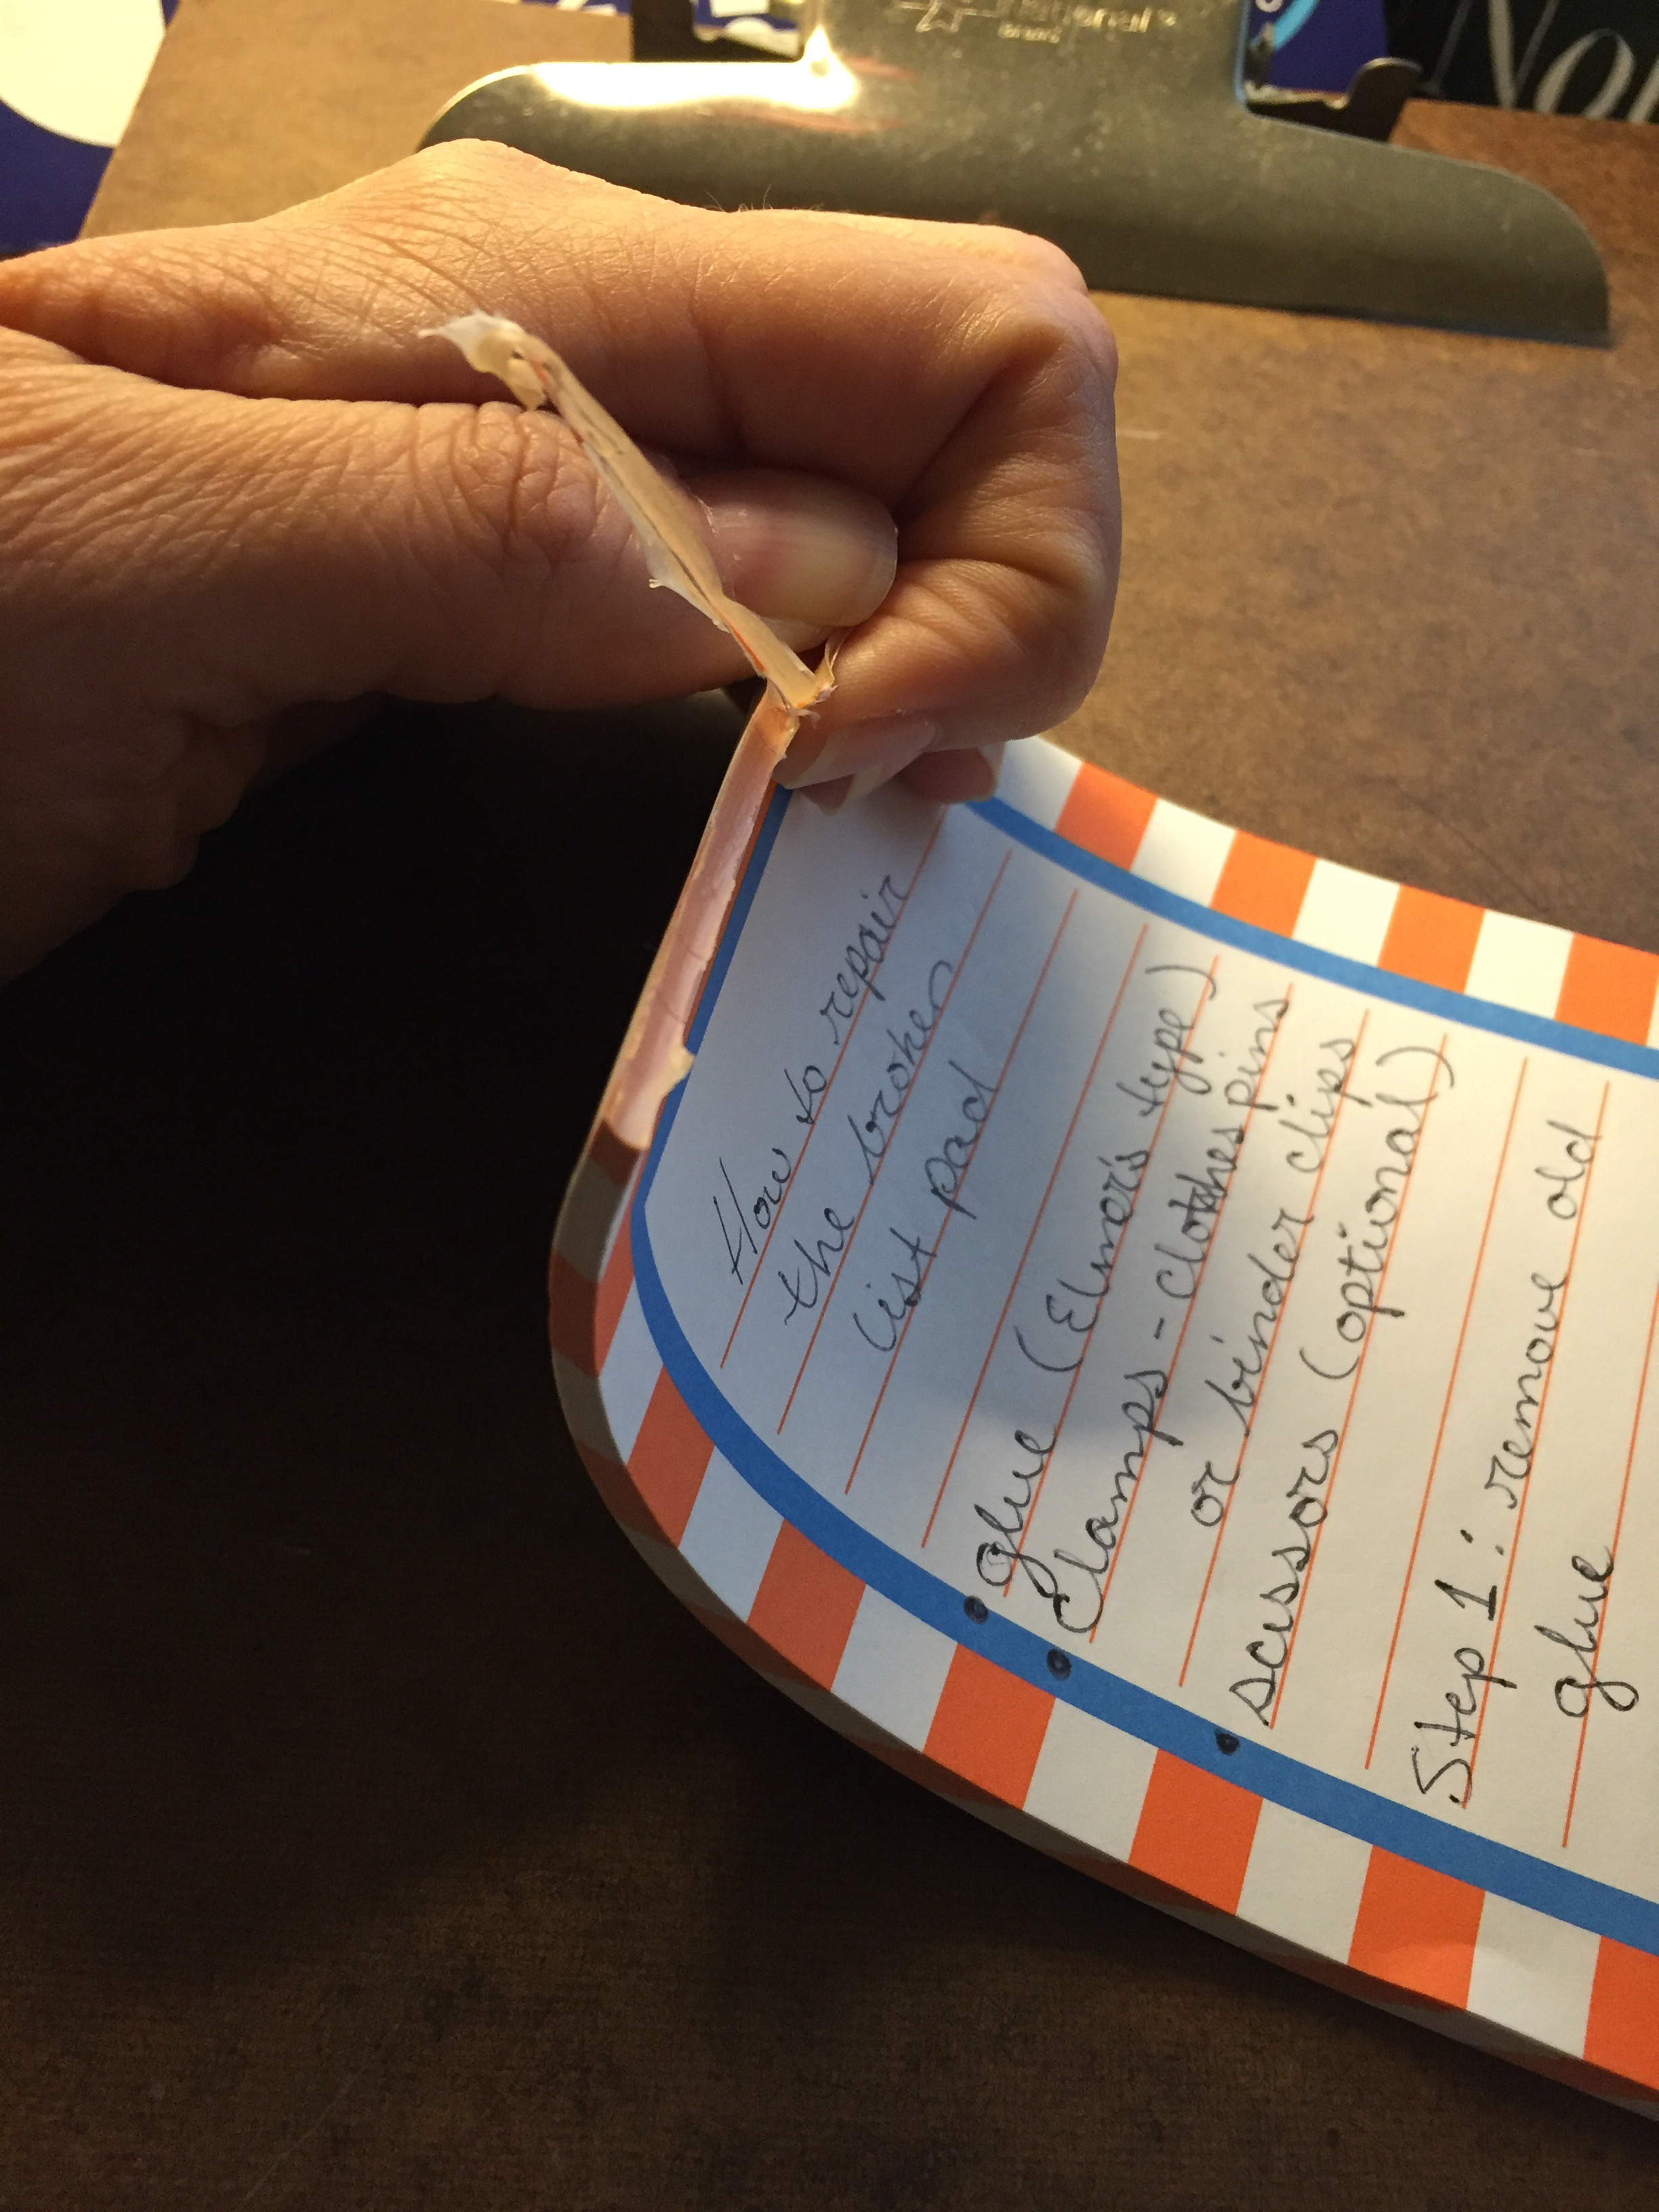 National
Brand
How to repair
the broken
list pad
• glue (Elmer's type)
• Clamps - clothespins
or binder clips
• scissors (optional)
Step 1: remove old
glue